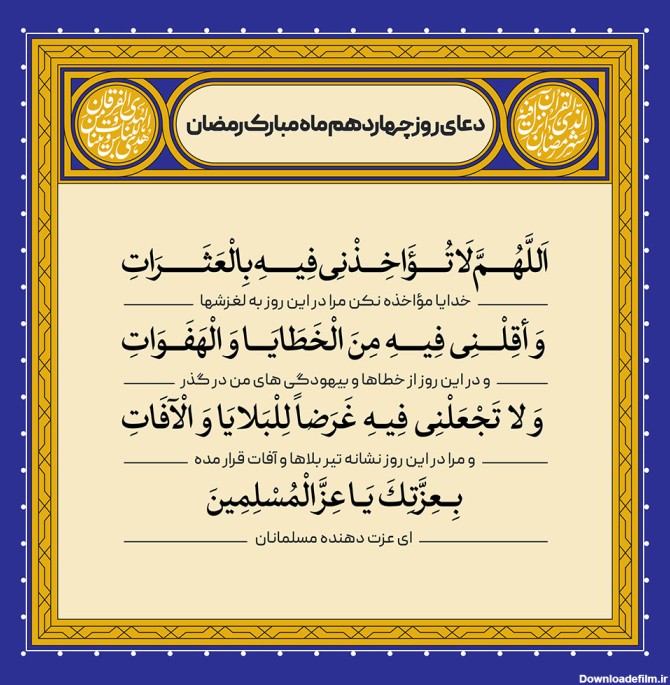 دعای روز چهاردهم ماه مبارک رمضان
اَللَّهُمَّ لَا تُؤَاخِذْنِی فِیهِ بِالْعَثَرَاتِ
خدایا مؤاخذه نکن مرا در این روز به لغزشها
وَ أَقِلْنِی فِیهِ مِنَ الْخَطَایَا وَ الْهَفَوَاتِ
و در این روز از خطاها و بیهودگی های من در گذر
وَ لا تَجْعَلْنِی فِیهِ غَرَضاً لِلْبَلایَا وَ الْآفَاتِ
و مرا در این روز نشانه تیر بلاها و آفات قرار مده
بِعِزَّتِكَ یَا عِزَّ الْمُسْلِمِینَ
ای عزت دهنده مسلمانان
Downloadefilm.ir